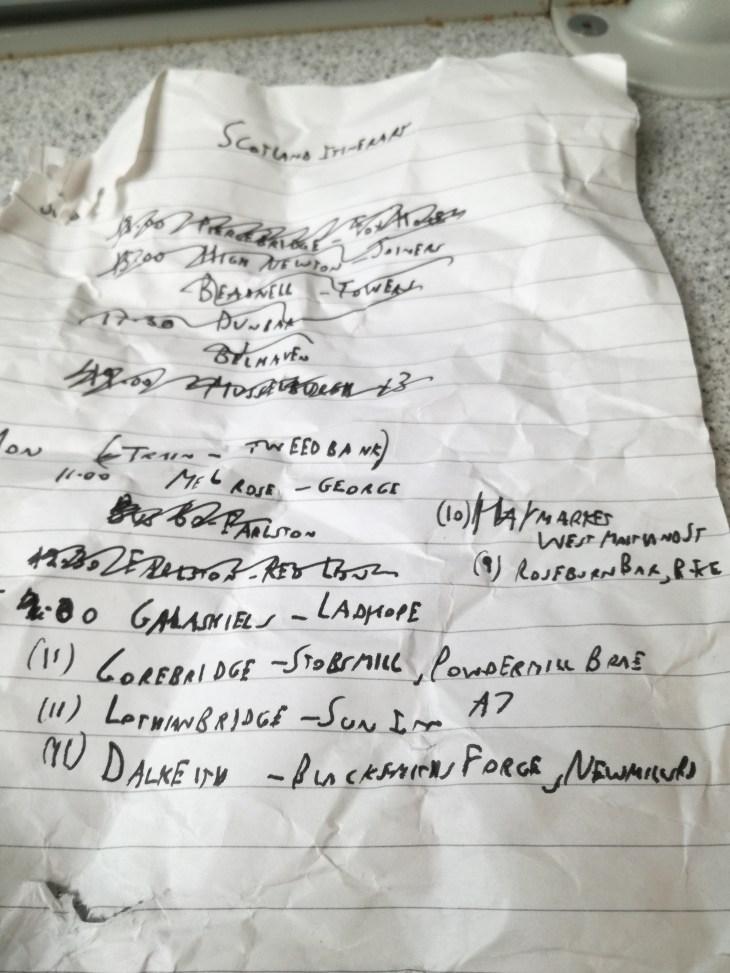 SCOTLAND ITINERARY
13.00 PIERCEBRIDGE - FOX HOLES
15.00 HIGH NEWTON - JOINERS
BEADNELL - TOWERS
17-30 DUNBAR
BELHAVEN
19.00 MUSSELBURGH x3
MON (TRAIN - TWEEDBANK)
11.00 MELROSE - GEORGE
EARLSTON
(10) HAYMARKET
WEST MAITLAND ST
EARLSTON - RED LION
(9) ROSEBURN BAR,
.00 GALASHIELS - LADHOPE
(11) GOREBRIDGE - STOBSMILL, POWDERMILL BRAE
(11) LOTHIANBRIDGE - SUN INN A7
DALKEITH - BLACKSMITHS FORGE, NEWMILLS RD